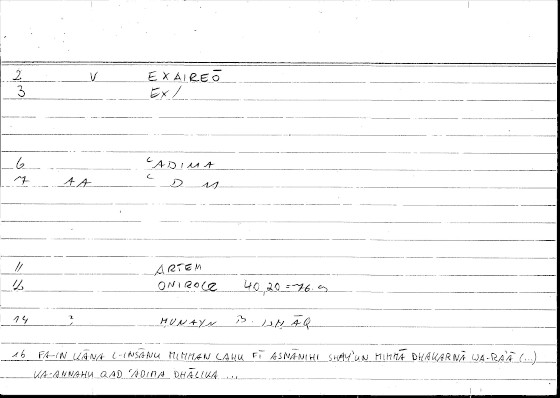 2 V EXAIREŌ
3 EX/
6 ʿADIMA
7 AA ʿ D M
11 ARTEM
12 ONIROCR 40,20 = 76.9
14 ? ḤUNAYN B. ISḤĀQ
16 FA-IN KĀNA L-INSĀNU MIMMAN LAHU FĪ ASNĀNIHI SHAYʾUN MIMMĀ DHAKARNĀ WA-RAʾĀ (...)
KA-ANNAHU QAD ʿADIMA DHĀLIKA ...